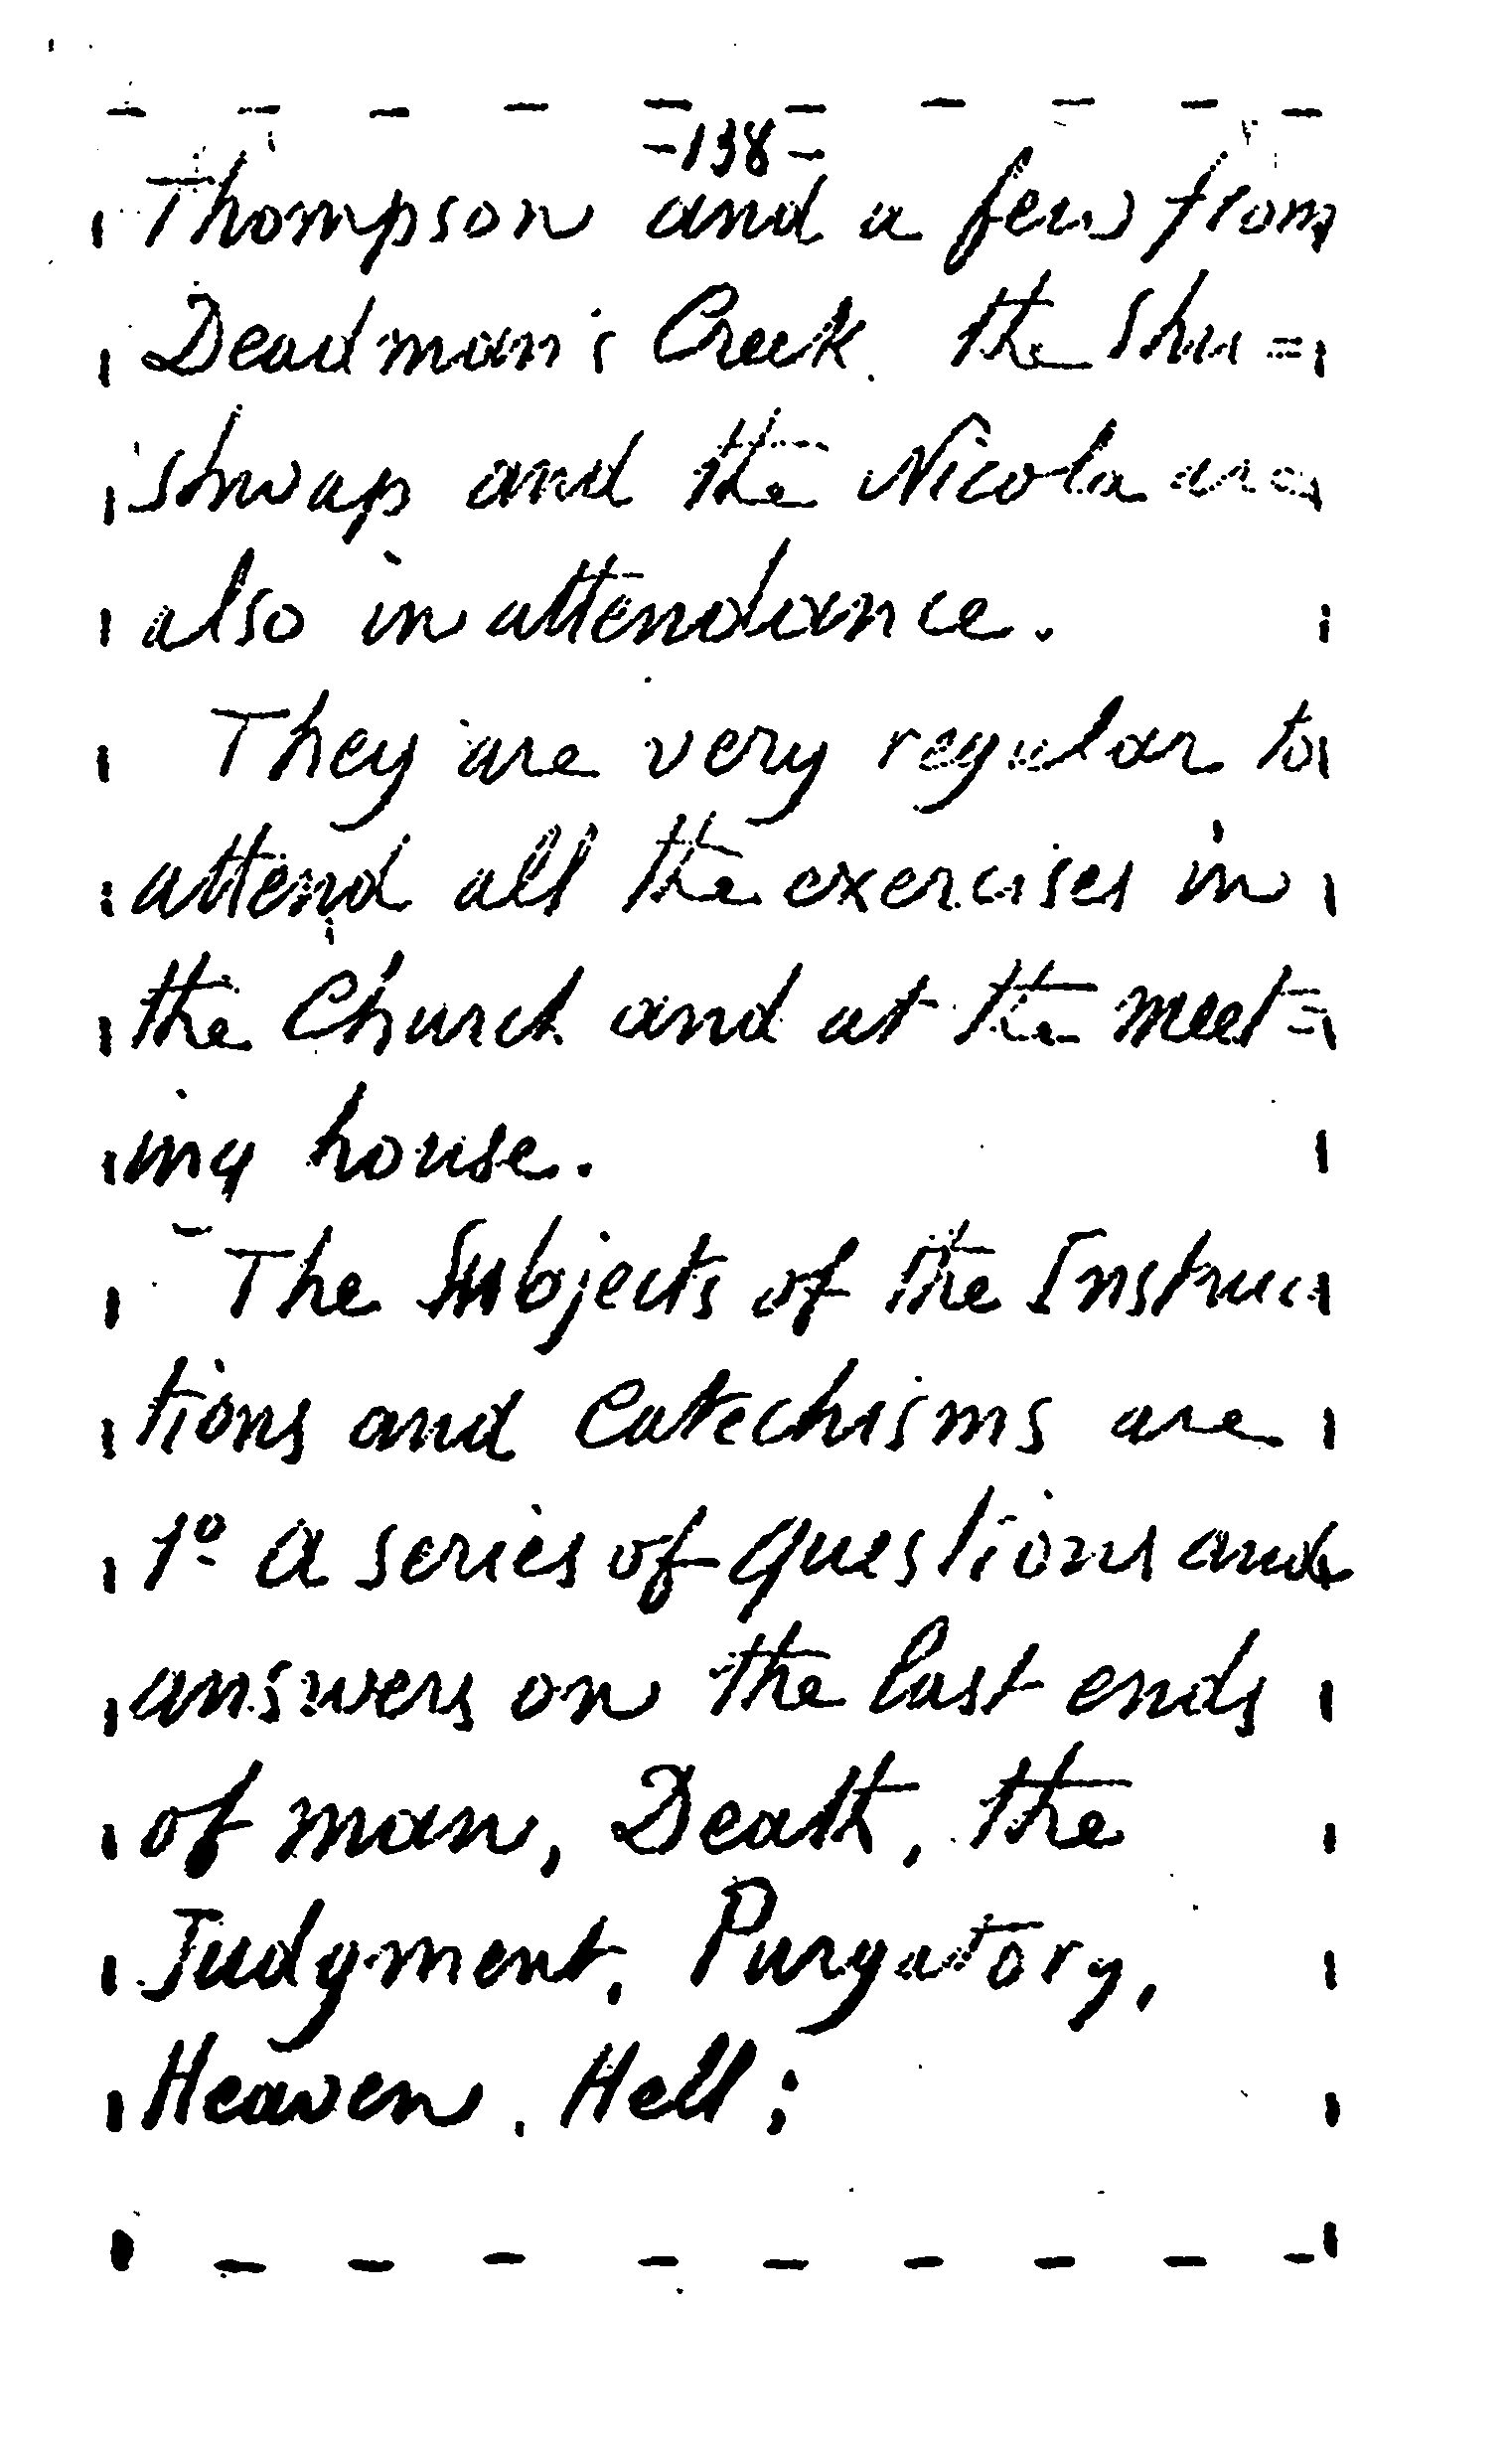 -138-
Thompson and a few from
Deadman's Creek. the Shu=
shwap and the Nicola are
also in attendance.
They are very regular to
attend all the exercises in
the Church and at the meet=
ing house.
The Subjects of the Instruc
tions and Catechisms are
1º a series of questions and
answers on the last ends
of man, Death, the
Judgment, Purgatory,
Heaven, Hell;